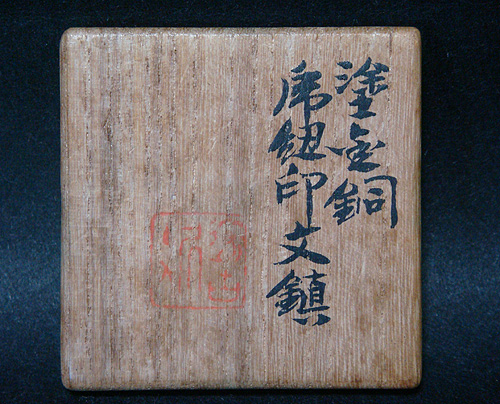 塗金銅
虎鈕印文鎮